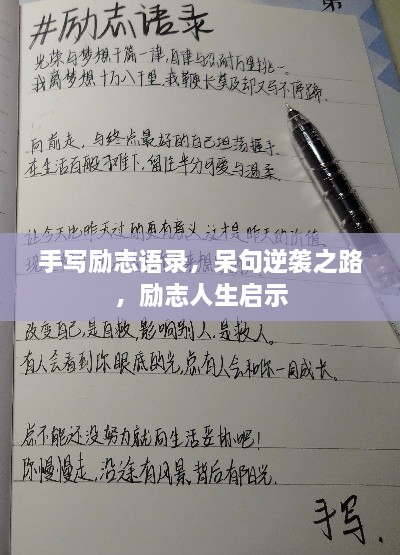 #励志语录
光荣与梦想千篇一律,自律与忍耐万里挑一。
我离梦想十万八千里,我鞭长莫及却又马不停蹄
向前走,与终点最好的自己坦荡握手
在生活百般刁难下,留住半分可爱与温柔
让今天比昨天过的更有意义,这才是明天的价值
手写励志语录,呆句逆袭之路
,励志人生启示
改变自己,是自救,影响别人,是救人。
有人会看到你眼底的光,总有人会和你一同成长。
总不能还没努力就向生活妥协吧!
你慢慢走,沿途有风景,背后有阳光.
手写.